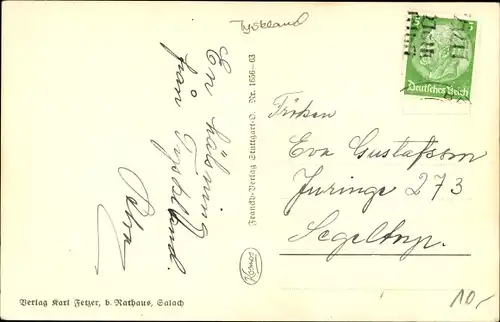 Tyskland
En hälsning
från Tyskland.
Franckh-Verlag Stuttgart-O. Nr. 1656-63
Kosmos
5 5
Deutsches Reich
Fröken
Eva Gustafsson
Juringe 273
Segeltorp.
10,-
Verlag Karl Fetzer, b. Rathaus, Salach